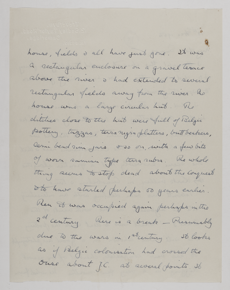 6
house, fields & all have just gone. It was
a rectangular enclosure on a gravel terrace
above the river & had extended to several
rectangular fields away from the river. The
house was a large circular hut. The
ditches close to this hut were full of Belgic
pottery, terra nigra platters, butt beakers,
semi bead rim jars & so on with a few bits
of worn samian type terra rubra. The whole
thing seems to stop dead about the Conquest
& to have started perhaps 50 years earlier
Then it was occupied again perhaps in the
2nd century. There is a break – Presumably
due to the wars in 1st century. It looks
as if Belgic colonisation had crossed the
Ouse about